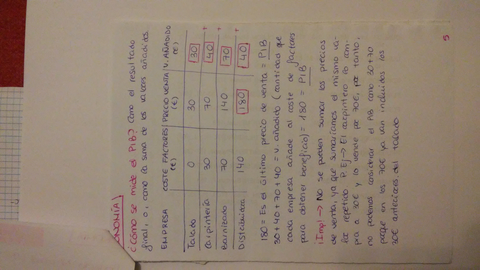 ONOMÍA)
¿Cómo se mide el PiB? Como el resultado
final, o, como la suma de los valores añadidos.
EMPRESA COSTE FACTORES (€) PRECIO VENTA (€) V. AÑADIDOS (€)
Talado 0 30 30 +
Carpintería 30 70 40 +
Barnizado 70 140 70 +
Distribuidora 140 180 40
180 = Es el último precio de venta = PiB
30 + 40 + 70 + 40 = v. añadido (cantidad que
cada empresa añade al coste de factores
para obtener beneficio) = 180 = PiB
¡Imp! → No se pueden sumar los precios
de venta, ya que sumaríamos el mismo va-
lor repetido P. Ej → El carpintero lo com-
pra a 30€ y lo vende por 70€, por tanto,
no podemos considerar el PiB como 30 + 70
porque en los 70€ ya van incluidos los
30€ anteriores del talado
5